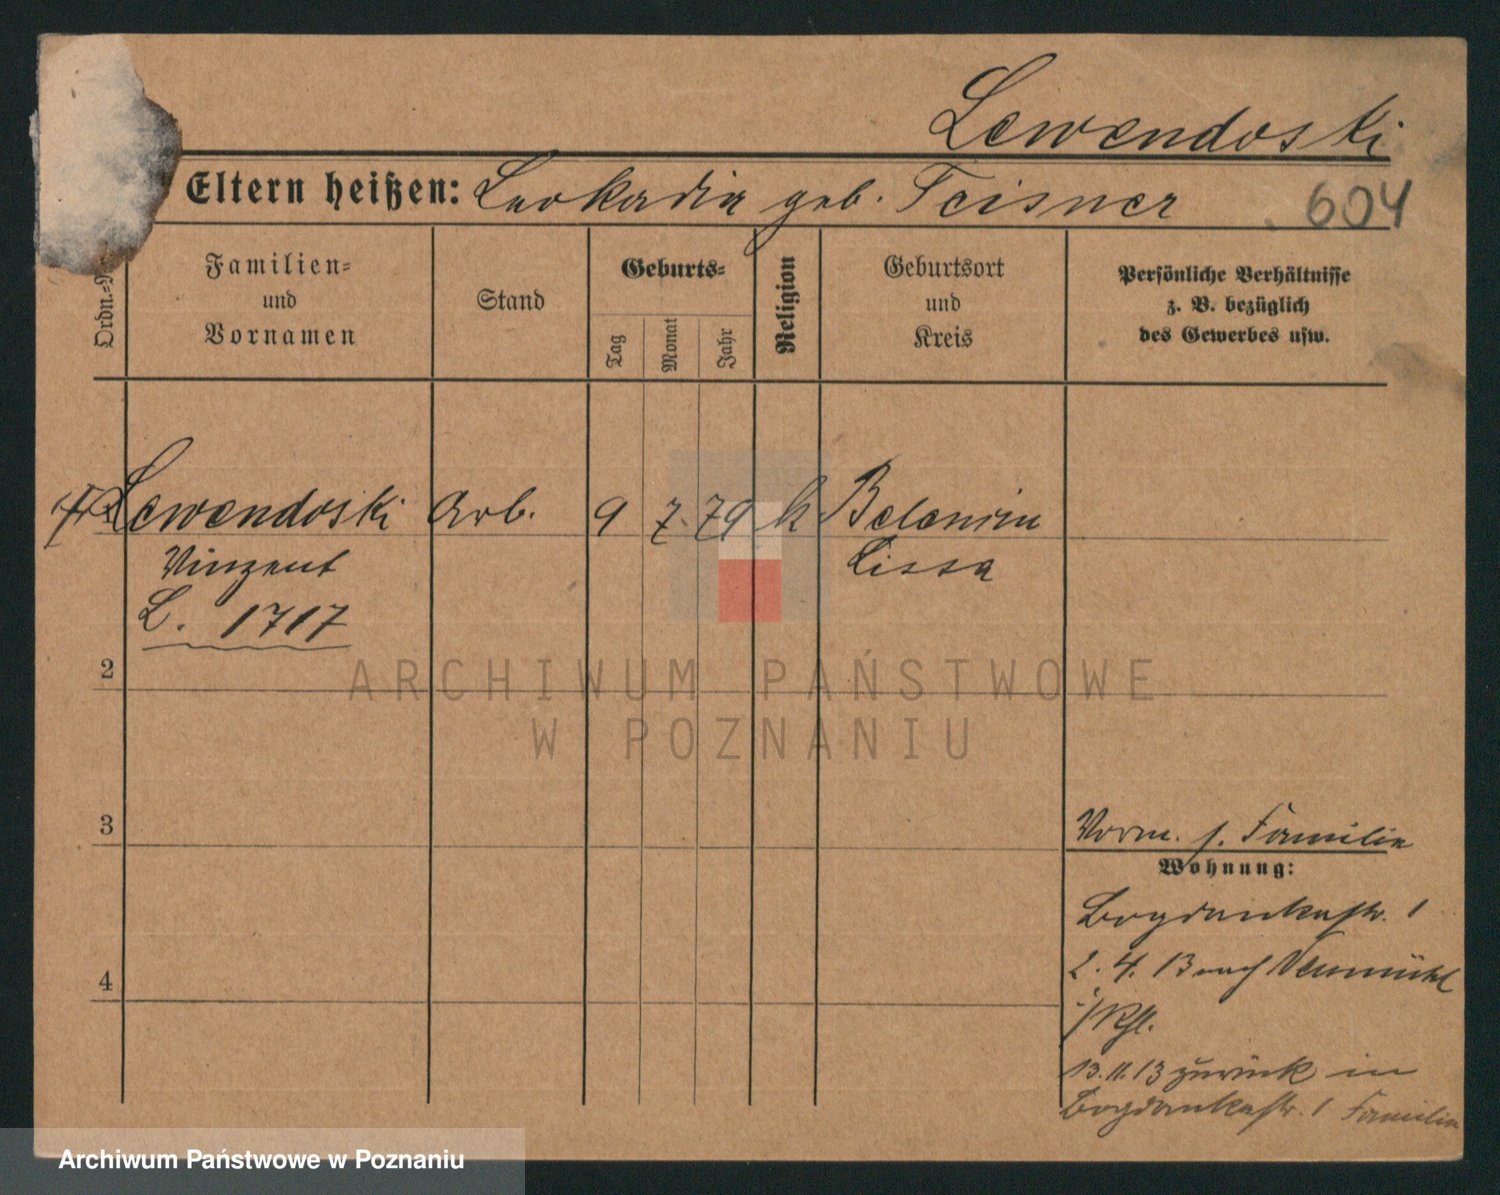 Lewendoski
Eltern heißen: Leokadia geb. Teisner
604
Ordn.=
Familien=
und
Vornamen
Stand
Geburts=
Tag
Monat
Jahr
Religion
Geburtsort
und
Kreis
Persönliche Verhältnisse
z. B. bezüglich
des Gewerbes usw.
Lewendoski Arb. 9 7. 79 k
Vinzent Lissa
L. 1717
2
3
4
Vorm. s. Familie
Wohnung:
Bogdankastr. 1
2. 4. 13 nach
13.11.13 zurück in
Bogdankastr. 1 Familie
ARCHIWUM PAŃSTWOWE
W POZNANIU
Archiwum Państwowe w Poznaniu